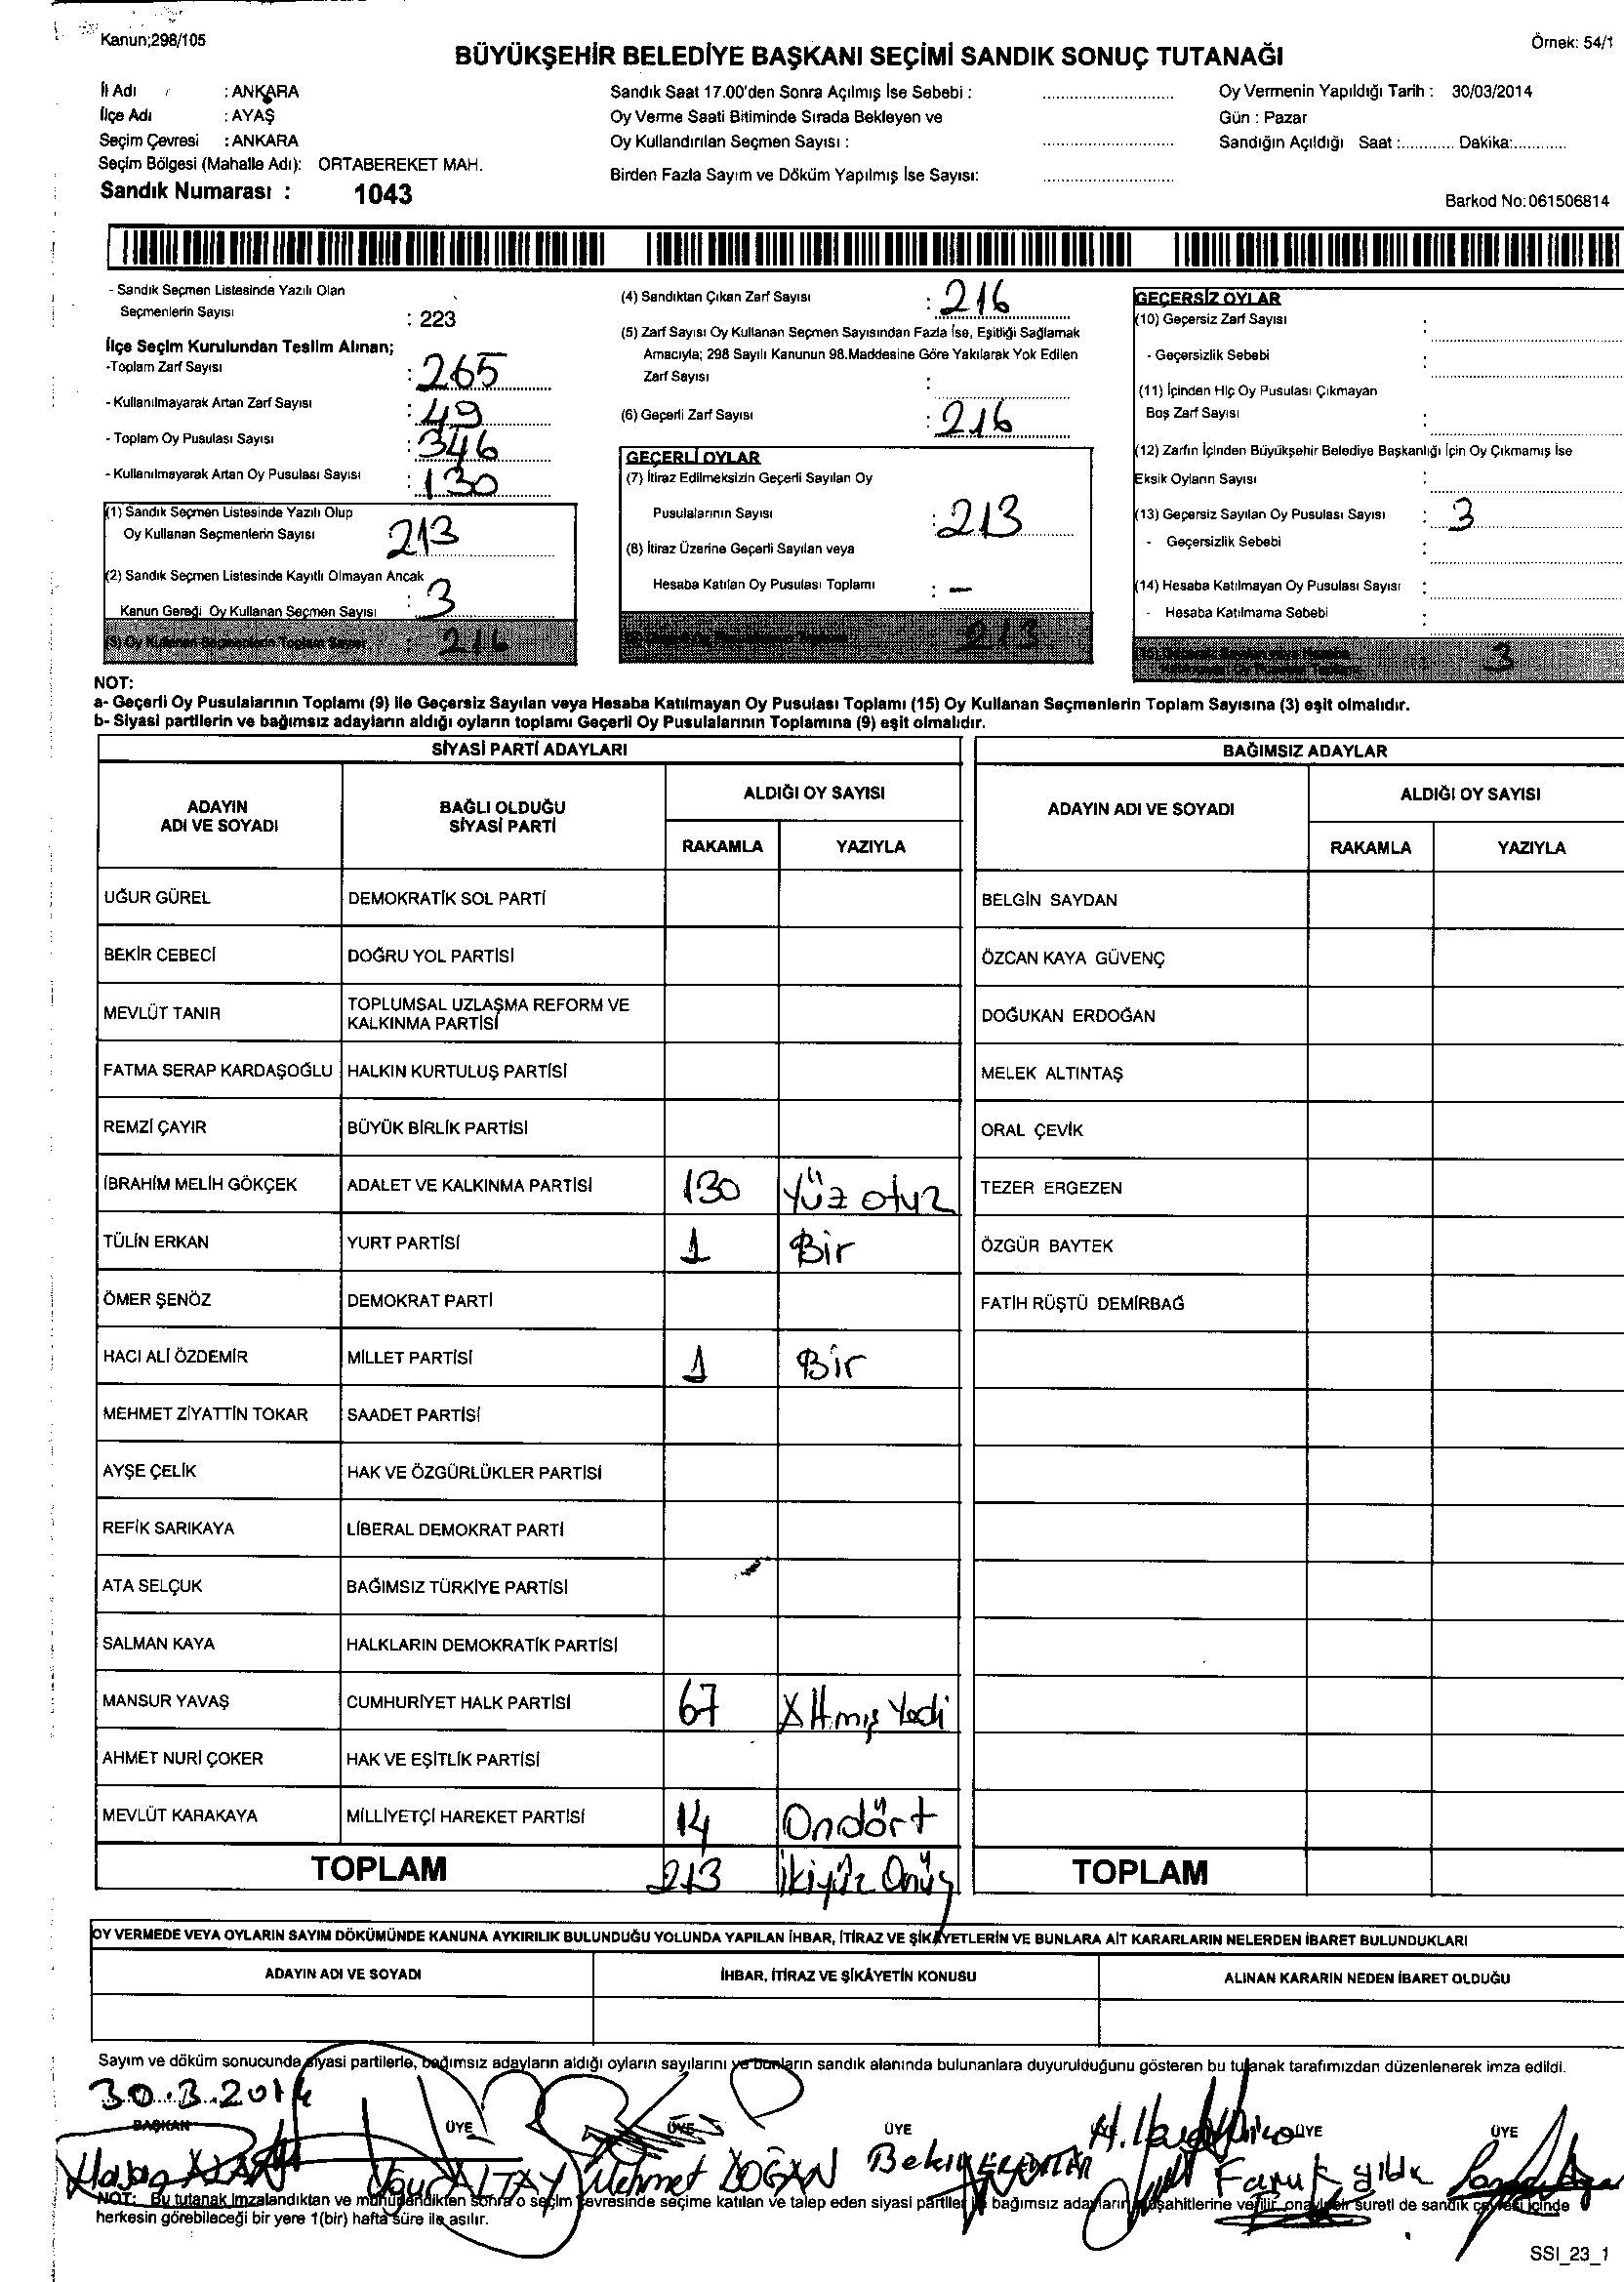 Kanun;298/105
Örnek: 54/1
BÜYÜKŞEHİR BELEDİYE BAŞKANI SEÇİMİ SANDIK SONUÇ TUTANAĞI
İl Adı : ANKARA
İlçe Adı : AYAŞ
Seçim Çevresi : ANKARA
Seçim Bölgesi (Mahalle Adı): ORTABEREKET MAH.
Sandık Numarası : 1043
Sandık Saat 17.00'den Sonra Açılmış İse Sebebi :
Oy Verme Saati Bitiminde Sırada Bekleyen ve
Oy Kullandırılan Seçmen Sayısı :
Birden Fazla Sayım ve Döküm Yapılmış İse Sayısı:
Oy Vermenin Yapıldığı Tarih : 30/03/2014
Gün : Pazar
Sandığın Açıldığı Saat :........... Dakika:...........
Barkod No:061506814
- Sandık Seçmen Listesinde Yazılı Olan
Seçmenlerin Sayısı : 223
İlçe Seçim Kurulundan Teslim Alınan;
-Toplam Zarf Sayısı : 265
- Kullanılmayarak Artan Zarf Sayısı : 49
- Toplam Oy Pusulası Sayısı : 346
- Kullanılmayarak Artan Oy Pusulası Sayısı : 130
(1) Sandık Seçmen Listesinde Yazılı Olup
Oy Kullanan Seçmenlerin Sayısı 213
(2) Sandık Seçmen Listesinde Kayıtlı Olmayan Ancak
Kanun Gereği Oy Kullanan Seçmen Sayısı : 3
(3) Oy Kullanan Seçmenlerin Toplam Sayısı : 216
(4) Sandıktan Çıkan Zarf Sayısı : 216
(5) Zarf Sayısı Oy Kullanan Seçmen Sayısından Fazla İse, Eşitliği Sağlamak
Amacıyla; 298 Sayılı Kanunun 98.Maddesine Göre Yakılarak Yok Edilen
Zarf Sayısı :
(6) Geçerli Zarf Sayısı : 216
GEÇERLİ OYLAR
(7) İtiraz Edilmeksizin Geçerli Sayılan Oy
Pusulalarının Sayısı : 213
(8) İtiraz Üzerine Geçerli Sayılan veya
Hesaba Katılan Oy Pusulası Toplamı : —
213
GEÇERSİZ OYLAR
(10) Geçersiz Zarf Sayısı :
- Geçersizlik Sebebi :
(11) İçinden Hiç Oy Pusulası Çıkmayan
Boş Zarf Sayısı :
(12) Zarfın İçinden Büyükşehir Belediye Başkanlığı İçin Oy Çıkmamış İse
Eksik Oyların Sayısı :
(13) Geçersiz Sayılan Oy Pusulası Sayısı : 3
- Geçersizlik Sebebi :
(14) Hesaba Katılmayan Oy Pusulası Sayısı :
- Hesaba Katılmama Sebebi :
3
NOT:
a- Geçerli Oy Pusulalarının Toplamı (9) ile Geçersiz Sayılan veya Hesaba Katılmayan Oy Pusulası Toplamı (15) Oy Kullanan Seçmenlerin Toplam Sayısına (3) eşit olmalıdır.
b- Siyasi partilerin ve bağımsız adayların aldığı oyların toplamı Geçerli Oy Pusulalarının Toplamına (9) eşit olmalıdır.
SİYASİ PARTİ ADAYLARI
ADAYIN
ADI VE SOYADI
BAĞLI OLDUĞU
SİYASİ PARTİ
ALDIĞI OY SAYISI
RAKAMLA YAZIYLA
UĞUR GÜREL DEMOKRATİK SOL PARTİ
BEKİR CEBECİ DOĞRU YOL PARTİSİ
MEVLÜT TANIR TOPLUMSAL UZLAŞMA REFORM VE
KALKINMA PARTİSİ
FATMA SERAP KARDAŞOĞLU HALKIN KURTULUŞ PARTİSİ
REMZİ ÇAYIR BÜYÜK BİRLİK PARTİSİ
İBRAHİM MELİH GÖKÇEK ADALET VE KALKINMA PARTİSİ 130 Yüz otuz
TÜLİN ERKAN YURT PARTİSİ 1 Bir
ÖMER ŞENÖZ DEMOKRAT PARTİ
HACI ALİ ÖZDEMİR MİLLET PARTİSİ 1 Bir
MEHMET ZİYATTİN TOKAR SAADET PARTİSİ
AYŞE ÇELİK HAK VE ÖZGÜRLÜKLER PARTİSİ
REFİK SARIKAYA LİBERAL DEMOKRAT PARTİ
ATA SELÇUK BAĞIMSIZ TÜRKİYE PARTİSİ
SALMAN KAYA HALKLARIN DEMOKRATİK PARTİSİ
MANSUR YAVAŞ CUMHURİYET HALK PARTİSİ 67 Altmış Yedi
AHMET NURİ ÇOKER HAK VE EŞİTLİK PARTİSİ
MEVLÜT KARAKAYA MİLLİYETÇİ HAREKET PARTİSİ 14 Ondört
TOPLAM 213 İkiyüz Onüç
BAĞIMSIZ ADAYLAR
ADAYIN ADI VE SOYADI
ALDIĞI OY SAYISI
RAKAMLA YAZIYLA
BELGİN SAYDAN
ÖZCAN KAYA GÜVENÇ
DOĞUKAN ERDOĞAN
MELEK ALTINTAŞ
ORAL ÇEVİK
TEZER ERGEZEN
ÖZGÜR BAYTEK
FATİH RÜŞTÜ DEMİRBAĞ
TOPLAM
OY VERMEDE VEYA OYLARIN SAYIM DÖKÜMÜNDE KANUNA AYKIRILIK BULUNDUĞU YOLUNDA YAPILAN İHBAR, İTİRAZ VE ŞİKAYETLERİN VE BUNLARA AİT KARARLARIN NELERDEN İBARET BULUNDUKLARI
ADAYIN ADI VE SOYADI
İHBAR, İTİRAZ VE ŞİKÂYETİN KONUSU
ALINAN KARARIN NEDEN İBARET OLDUĞU
Sayım ve döküm sonucunda siyasi partilerle, bağımsız adayların aldığı oyların sayılarını ve bunların sandık alanında bulunanlara duyurulduğunu gösteren bu tutanak tarafımızdan düzenlenerek imza edildi.
30.3.2014
BAŞKAN ÜYE ÜYE ÜYE ÜYE ÜYE
Uğur ALTAY Mehmet DOĞAN Bekir Faruk
NOT: Bu tutanak imzalandıktan ve mühürlendikten sonra o seçim çevresinde seçime katılan ve talep eden siyasi partiler ile bağımsız adayların müşahitlerine verilir, onaylı bir sureti de sandık çevresi içinde
herkesin görebileceği bir yere 1(bir) hafta süre ile asılır.
SSI_23_1